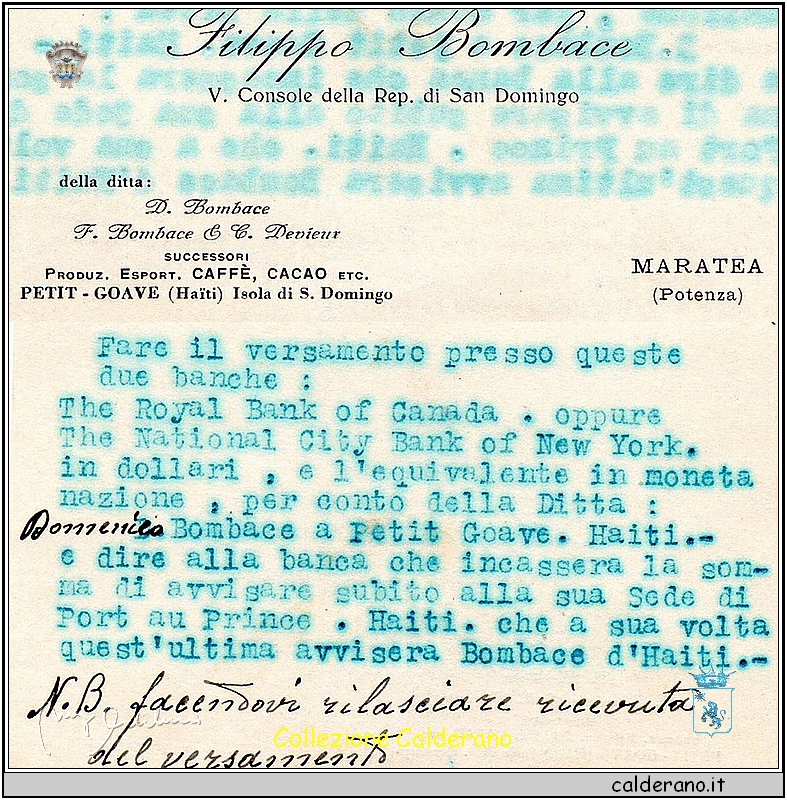 Filippo Bombace
V. Console della Rep. di San Domingo
della ditta:
D. Bombace
F. Bombace & C. Devieur
SUCCESSORI
PRODUZ. ESPORT. CAFFÈ, CACAO ETC.
PETIT - GOAVE (Haïti) Isola di S. Domingo
MARATEA
(Potenza)
Fare il versamento presso queste
due banche :
The Royal Bank of Canada . oppure
The National City Bank of New York.
in dollari , e l'equivalente in moneta
nazione , per conto della Ditta :
Domenico Bombace a Petit Goave. Haiti.-
e dire alla banca che incassera la som-
ma di avvisare subito alla sua Sede di
Port au Prince . Haiti. che a sua volta
quest'ultima avvisera Bombace d'Haiti.-
N.B. facendovi rilasciare ricevuta
del versamento
Collezione Calderano
calderano.it